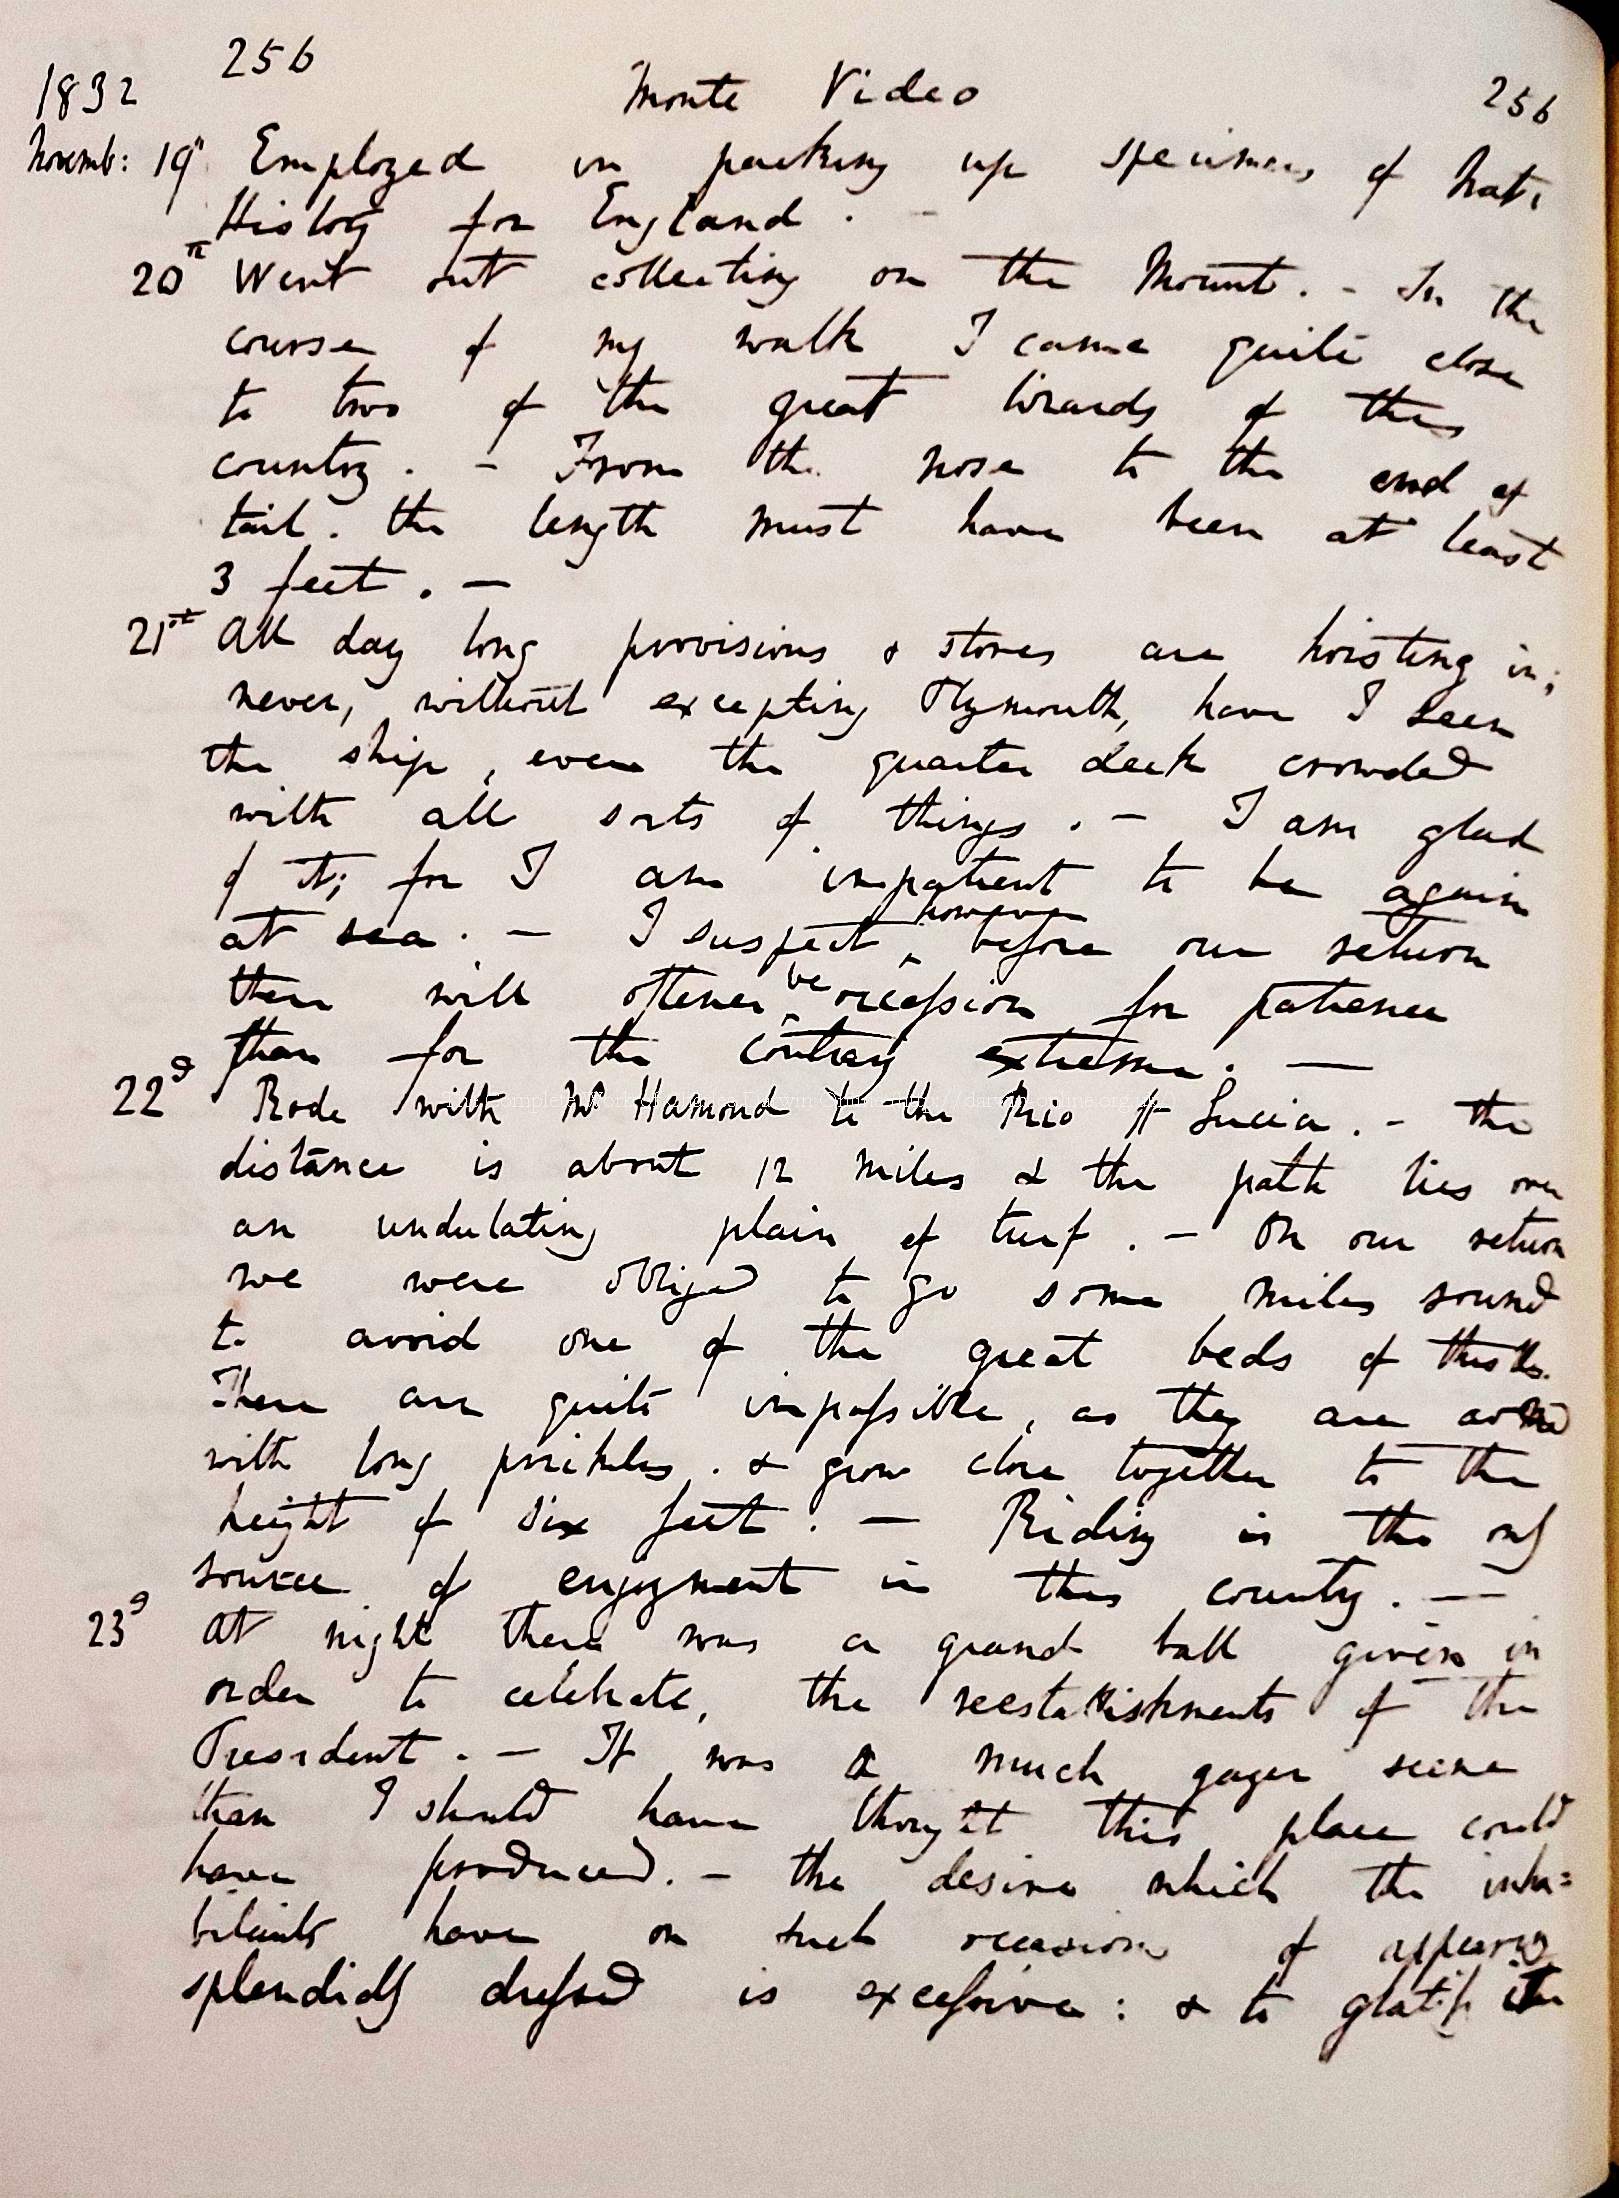 256
1832 Monte Video 256
Novemb: 19th Employed in packing up specimens of Nat:
History for England. —
20th Went out collecting on the Mount. — In the
course of my walk I came quite close
to two of the great lizards of this
country. — From the nose to the end of
tail. the length must have been at least
3 feet. —
21st All day long provisions & stores are hoisting in;
never, without excepting Plymouth, have I seen
the ship, even the quarter deck crowded
with all sorts of things. — I am glad
of it; for I am impatient to be again
at sea. — I suspect however before our return
there will oftener be occasion for patience
than for the contrary extreme. —
22d Rode with Mr Hamond to the Rio St Lucia. — the
distance is about 12 miles & the path lies over
an undulating plain of turf. — On our return
we were obliged to go some miles round
to avoid one of the great beds of thistles.
These are quite impassible, as they are armed
with long prickles. & grow close together to the
height of six feet. — Riding is the only
source of enjoyment in this country. —
23d At night there was a grand ball given in
order to celebrate, the reestablishments of the
President. — It was a much gayer scene
than I should have thought this place could
have produced. — the desire which the inha=
bitants have on such occasions of appearing
splendidly dressed is excessive: & to gratify